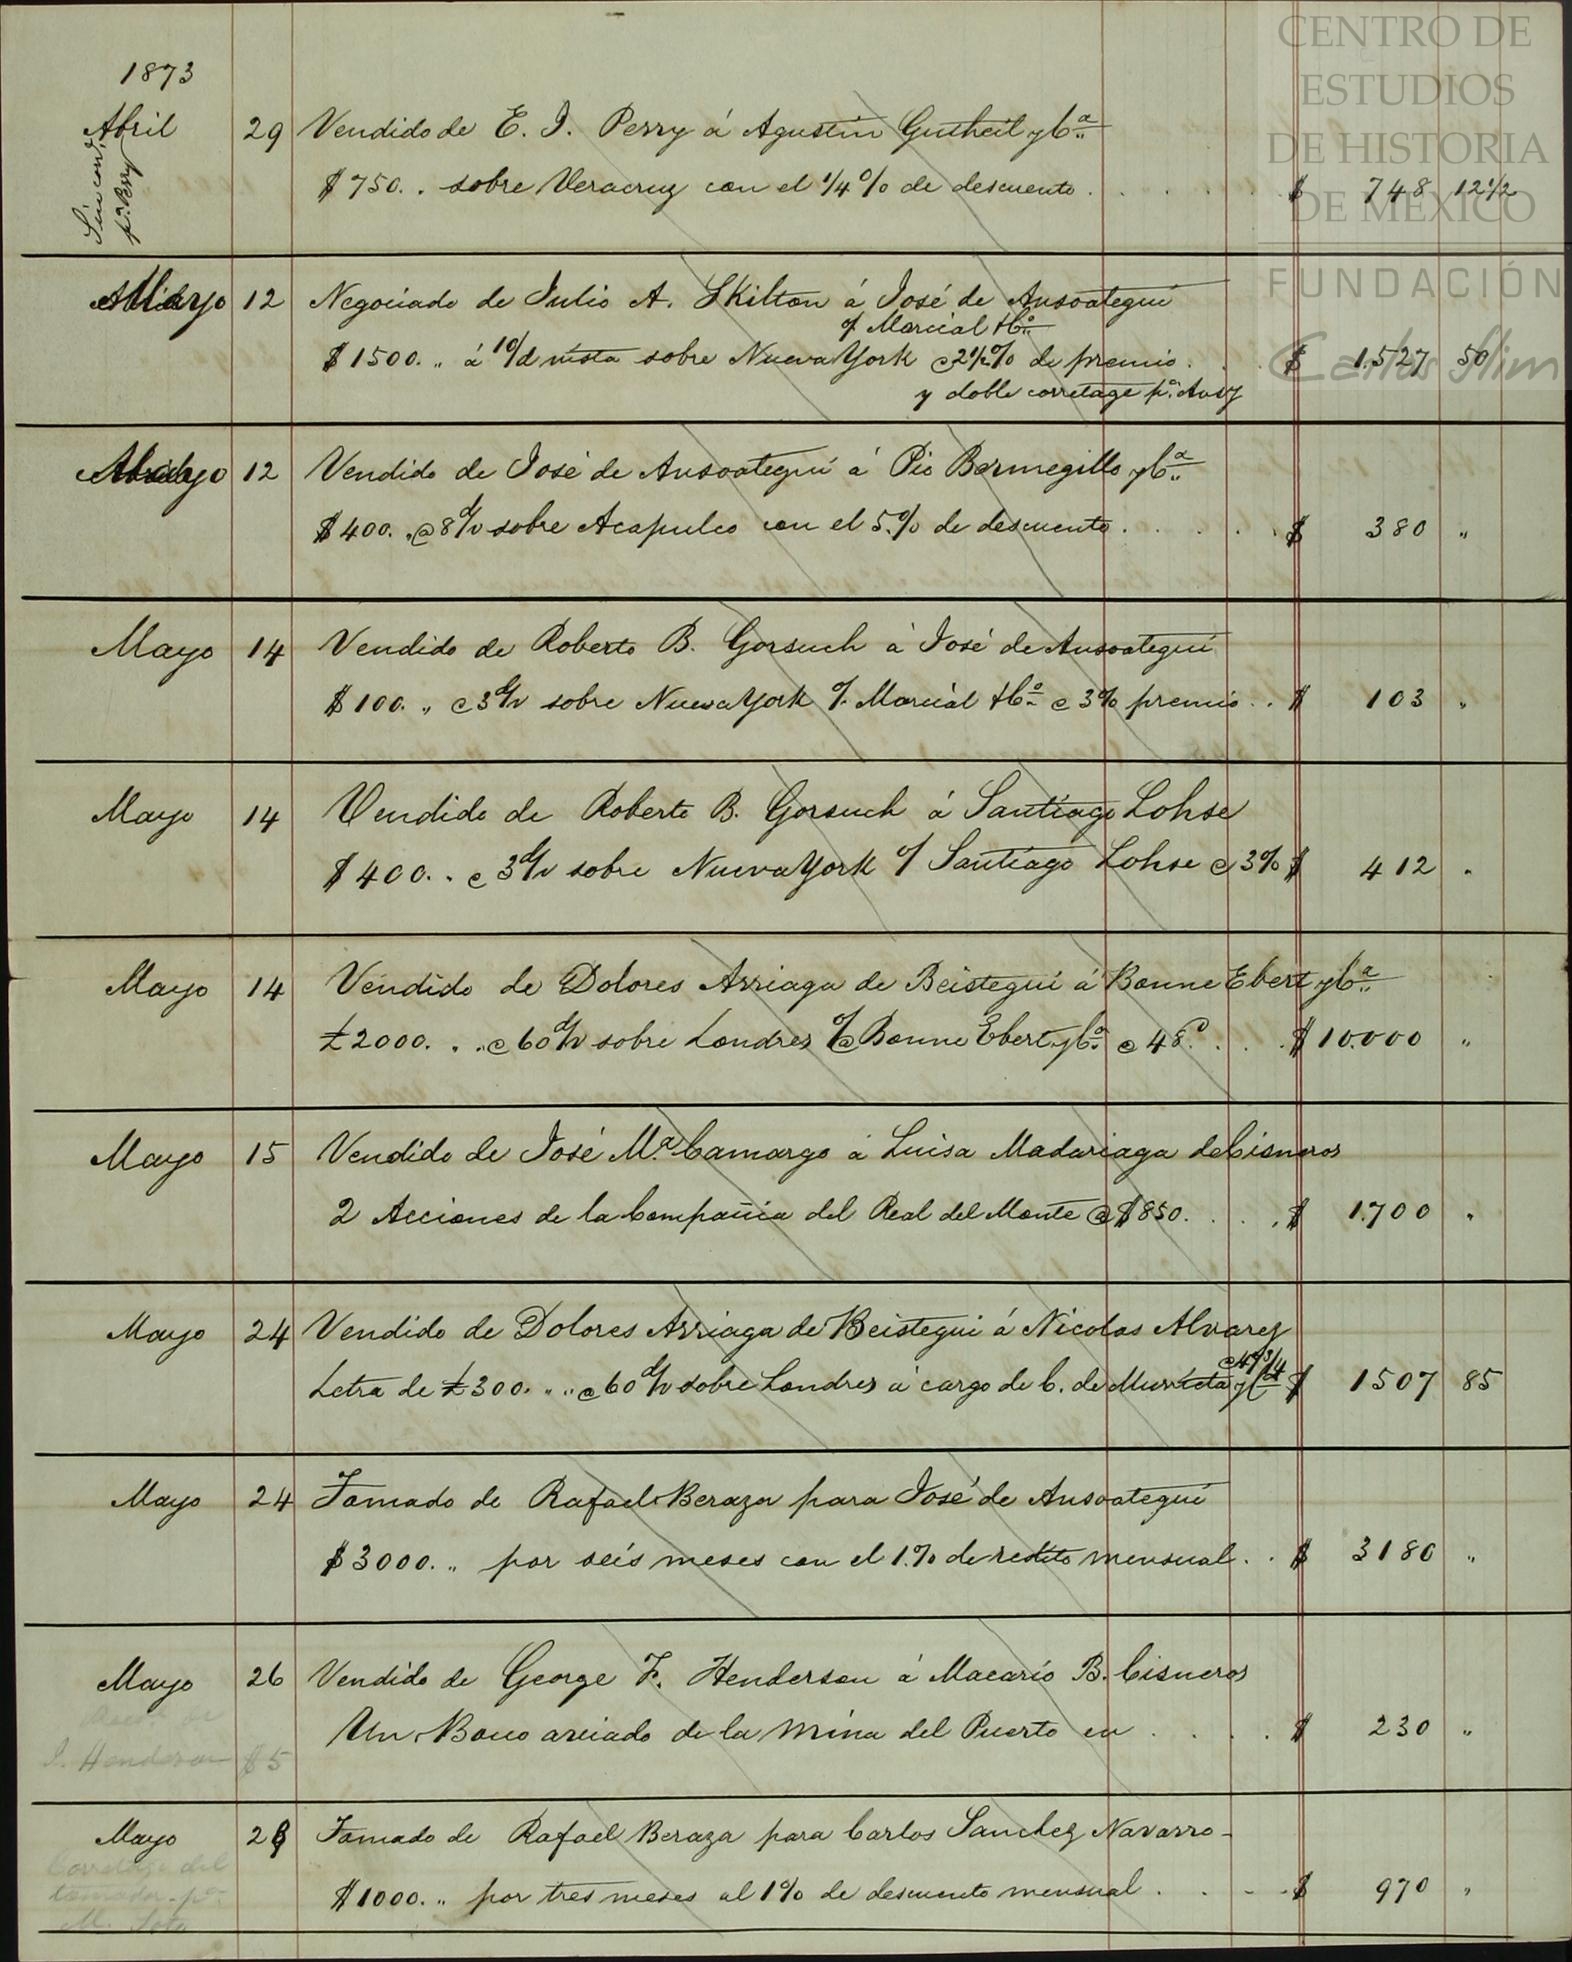 CENTRO DE
ESTUDIOS
DE HISTORIA
DE MÉXICO
FUNDACIÓN
Carlos Slim
1873
Abril 29 Vendido de E. I. Perry á Agustin Gutheil y Cª
Sin cond.
pr. Perry
$ 750. . sobre Veracruz con el 1/4 % de descuento . . . . . . $ 748 12 1/2
Mayo 12 Negociado de Julio A. Skilton á José de Ansoategui
o/ Marcial + Cº
$ 1500. „ á 10 d/ vista sobre Nueva York @ 2 1/2 % de premio . . . $ 1.527 50
y doble corretage pr. Ansy
Mayo 12 Vendido de José de Ansoategui á Pio Bermegillo y Cª
$ 400. „ @ 8 d/v sobre Acapulco con el 5.% de descuento . . . . . $ 380 „
Mayo 14 Vendido de Roberto B. Gorsuch á José de Ansoategui
$ 100. „ @ 3 d/v sobre Nueva York o/. Marcial + Cº @ 3% premio . . $ 103 „
Mayo 14 Vendido de Roberto B. Gorsuch á Santiago Lohse
$ 400. . @ 3 d/v sobre Nueva York o/ Santiago Lohse @ 3% $ 412 „
Mayo 14 Vendido de Dolores Arriaga de Beistegui á Bonne Ebert y Cª
£ 2000. . . @ 60 d/v sobre Londres o/ Bonne Ebert y Cª @ 48 . . . . $ 10.000 „
Mayo 15 Vendido de José Mª Camargo á Luisa Madariaga de Cisneros
2 Acciones de la Compañia del Real del Monte @ $ 850. . . . . $ 1.700 „
Mayo 24 Vendido de Dolores Arriaga de Beistegui á Nicolas Alvarez
@ 47 3/4
Letra de £ 300. „ „ @ 60 d/v sobre Londres á cargo de C. de Murrieta y Cª $ 1507 85
Mayo 24 Tomado de Rafael Beraza para José de Ansoategui
$ 3000. „ por seis meses con el 1.% de redito mensual . . $ 3180 „
Mayo 26 Vendido de George F. Henderson á Macario B. Cisneros
Un Bono aviado de la Mina del Puerto en . . . . $ 230 „
Henderson $ 5
Mayo 28 Tomado de Rafael Beraza para Carlos Sanchez Navarro -
Corretage del
tomador pr.
M. Soto
$ 1000. „ por tres meses al 1% de descuento mensual . . . . $ 970 „